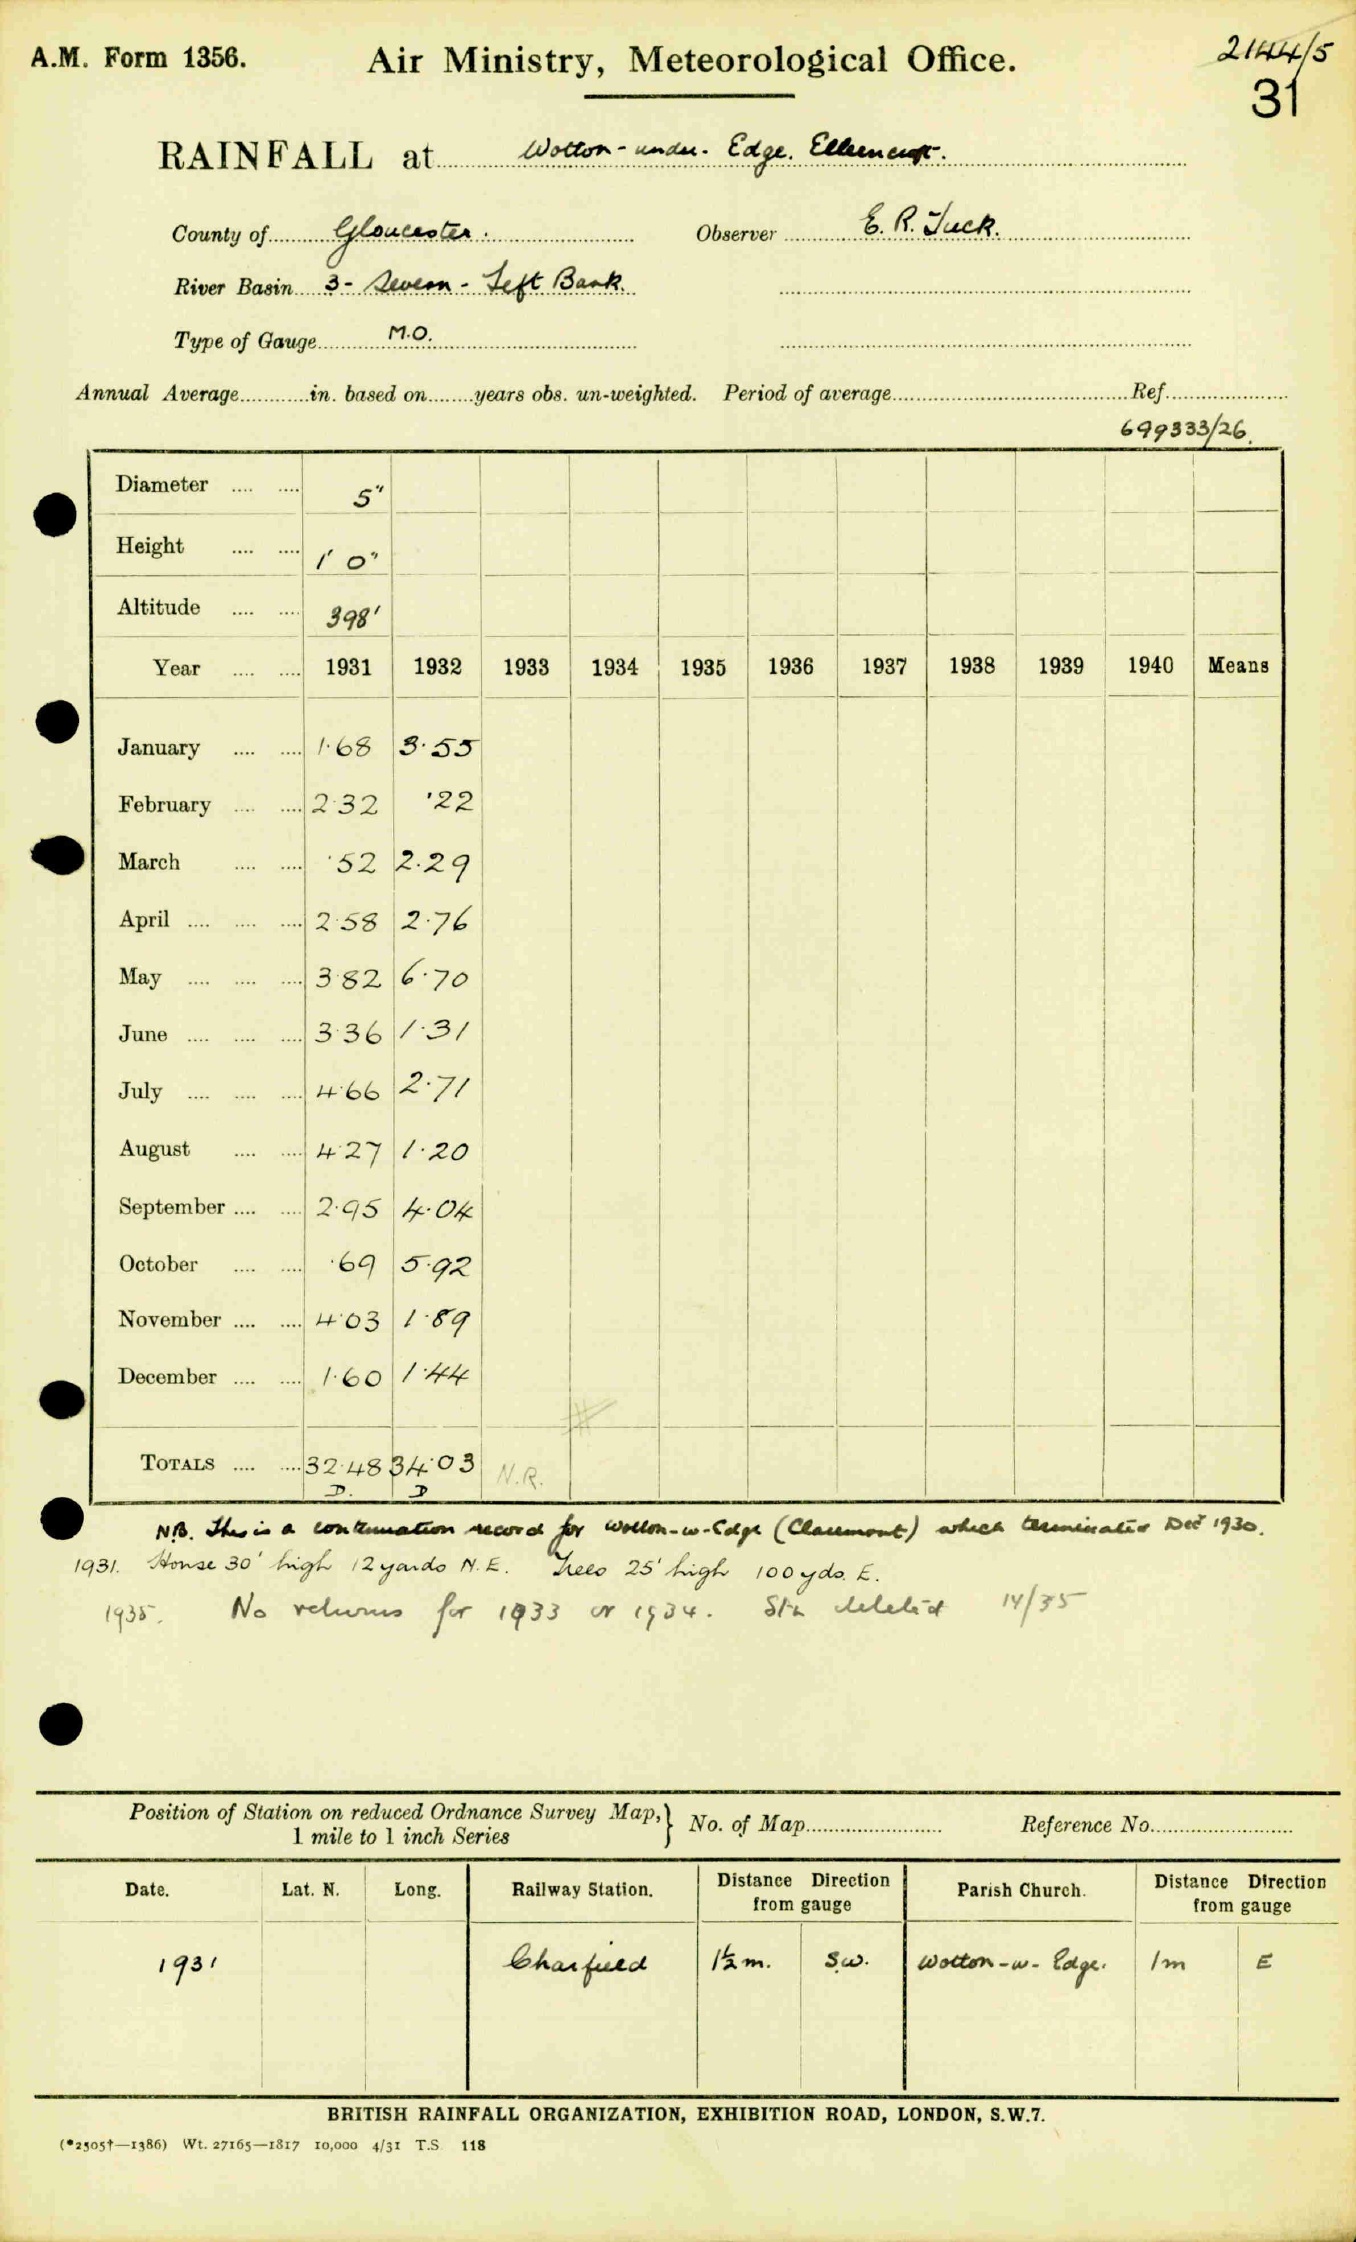 A.M. Form 1356. Air Ministry, Meteorological Office. 2144/5
31
RAINFALL at Wotton-under-Edge. Ellerncroft.
County of Gloucester. Observer E. R. Tuck.
River Basin 3- Severn - Left Bank.
Type of Gauge M.O.
Annual Average in. based on years obs. un-weighted. Period of average Ref.
699333/26.
Diameter 5"
Height 1' 0"
Altitude 398'
Year 1931 1932 1933 1934 1935 1936 1937 1938 1939 1940 Means
January 1·68 3·55
February 2·32 ·22
March ·52 2·29
April 2·58 2·76
May 3·82 6·70
June 3·36 1·31
July 4·66 2·71
August 4·27 1·20
September 2·95 4·04
October ·69 5·92
November 4·03 1·89
December 1·60 1·44
TOTALS 32·48 34·03 N.R.
D. D
N.B. This is a continuation record for Wotton-u-Edge (Claremont) which terminated Decr 1930.
1931. House 30' high 12 yards N.E. Trees 25' high 100 yds. E.
1935. No returns for 1933 or 1934. Stn deleted 14/35
Position of Station on reduced Ordnance Survey Map, } No. of Map Reference No.
1 mile to 1 inch Series
Date. Lat. N. Long. Railway Station. Distance Direction from gauge Parish Church. Distance Direction from gauge
1931 Charfield 1½ m. S.W. Wotton-u-Edge. 1m E
BRITISH RAINFALL ORGANIZATION, EXHIBITION ROAD, LONDON, S.W.7.
(*2505†—1386) Wt. 27165—1817 10,000 4/31 T.S. 118